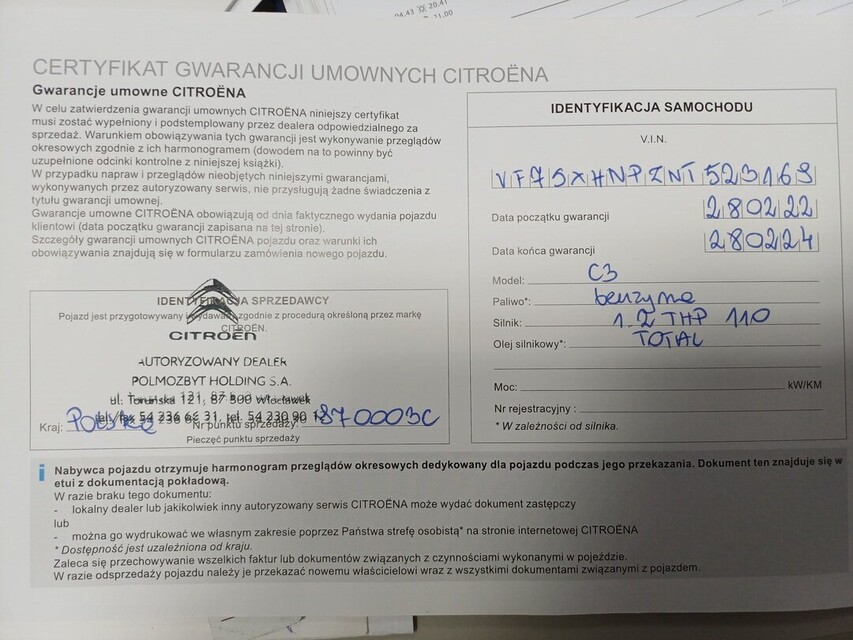 04.43 20.41
11.00
CERTYFIKAT GWARANCJI UMOWNYCH CITROËNA
Gwarancje umowne CITROËNA
W celu zatwierdzenia gwarancji umownych CITROËNA niniejszy certyfikat
musi zostać wypełniony i podstemplowany przez dealera odpowiedzialnego za
sprzedaż. Warunkiem obowiązywania tych gwarancji jest wykonywanie przeglądów
okresowych zgodnie z ich harmonogramem (dowodem na to powinny być
uzupełnione odcinki kontrolne z niniejszej książki).
W przypadku napraw i przeglądów nieobjętych niniejszymi gwarancjami,
wykonywanych przez autoryzowany serwis, nie przysługują żadne świadczenia z
tytułu gwarancji umownej.
Gwarancje umowne CITROËNA obowiązują od dnia faktycznego wydania pojazdu
klientowi (data początku gwarancji zapisana na tej stronie).
Szczegóły gwarancji umownych CITROËNA pojazdu oraz warunki ich
obowiązywania znajdują się w formularzu zamówienia nowego pojazdu.
IDENTYFIKACJA SPRZEDAWCY
Pojazd jest przygotowywany i wydawany zgodnie z procedurą określoną przez markę
CITROËN.
CITROËN
AUTORYZOWANY DEALER
POLMOZBYT HOLDING S.A.
ul. Toruńska 121, 87-800 Włocławek
tel./fax 54 236 62 31, tel. 54 230 90
Kraj: Polska Nr punktu sprzedaży: 870003C
Pieczęć punktu sprzedaży
IDENTYFIKACJA SAMOCHODU
V.I.N.
VF7SXHNPZNT523169
Data początku gwarancji 280222
Data końca gwarancji 280224
Model: C3
Paliwo*: benzyna
Silnik: 1.2 THP 110
Olej silnikowy*: TOTAL
Moc: kW/KM
Nr rejestracyjny :
* W zależności od silnika.
i Nabywca pojazdu otrzymuje harmonogram przeglądów okresowych dedykowany dla pojazdu podczas jego przekazania. Dokument ten znajduje się w
etui z dokumentacją pokładową.
W razie braku tego dokumentu:
- lokalny dealer lub jakikolwiek inny autoryzowany serwis CITROËNA może wydać dokument zastępczy
lub
- można go wydrukować we własnym zakresie poprzez Państwa strefę osobistą* na stronie internetowej CITROËNA
* Dostępność jest uzależniona od kraju.
Zaleca się przechowywanie wszelkich faktur lub dokumentów związanych z czynnościami wykonanymi w pojeździe.
W razie odsprzedaży pojazdu należy je przekazać nowemu właścicielowi wraz z wszystkimi dokumentami związanymi z pojazdem.